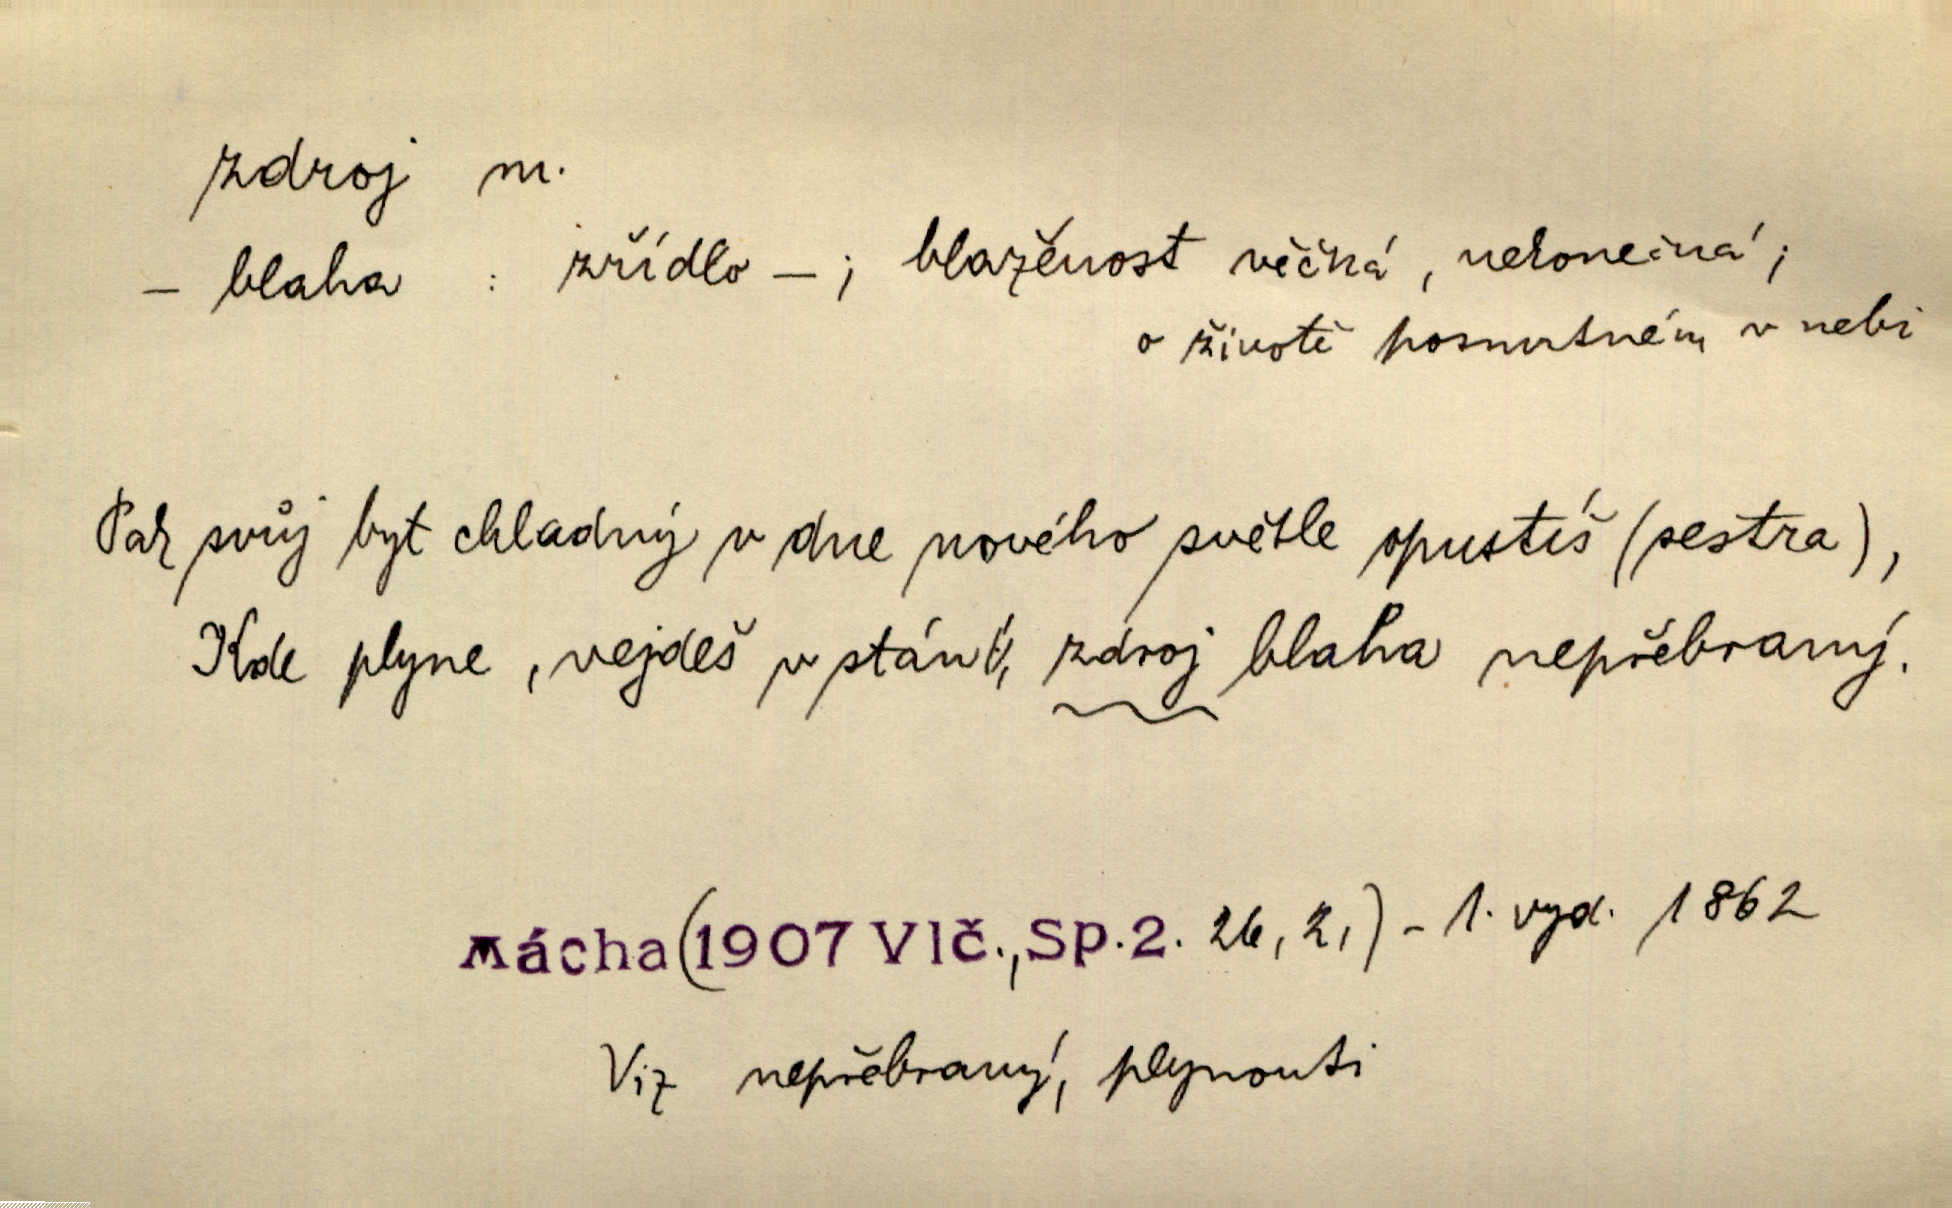 zdroj m.
– blaha : zřídlo – ; blaženost věčná, nekonečná;
o životě posmrtném v nebi
Pak svůj byt chladný v dne nového světle opustíš (sestra),
Kde plyne, vejdeš v stán, zdroj blaha nepřebraný.
Mácha (1907 Vlč., Sp.2. 26, 2,) – 1. vyd. 1862
Viz nepřebraný, plynouti